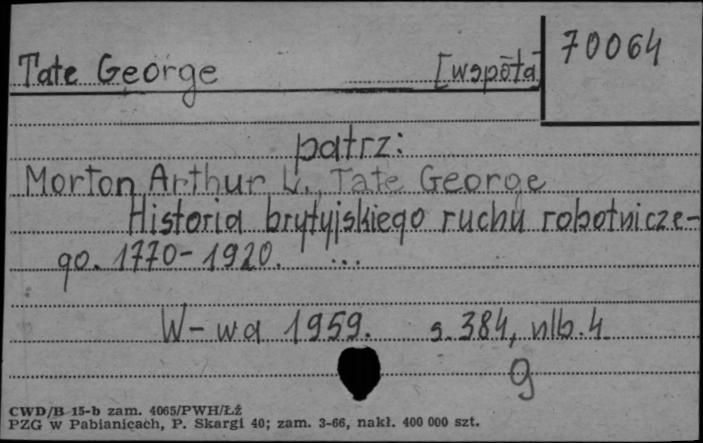 Tate George [współa] 70064
patrz:
Morton Arthur L., Tate George
Historia brytyjskiego ruchu robotnicze-
go. 1770-1920. ...
W-wa 1959. s. 384, nlb. 4
g
CWD/B 15-b zam. 4065/PWH/Łź
PZG w Pabianicach, P. Skargi 40; zam. 3-66, nakł. 400 000 szt.